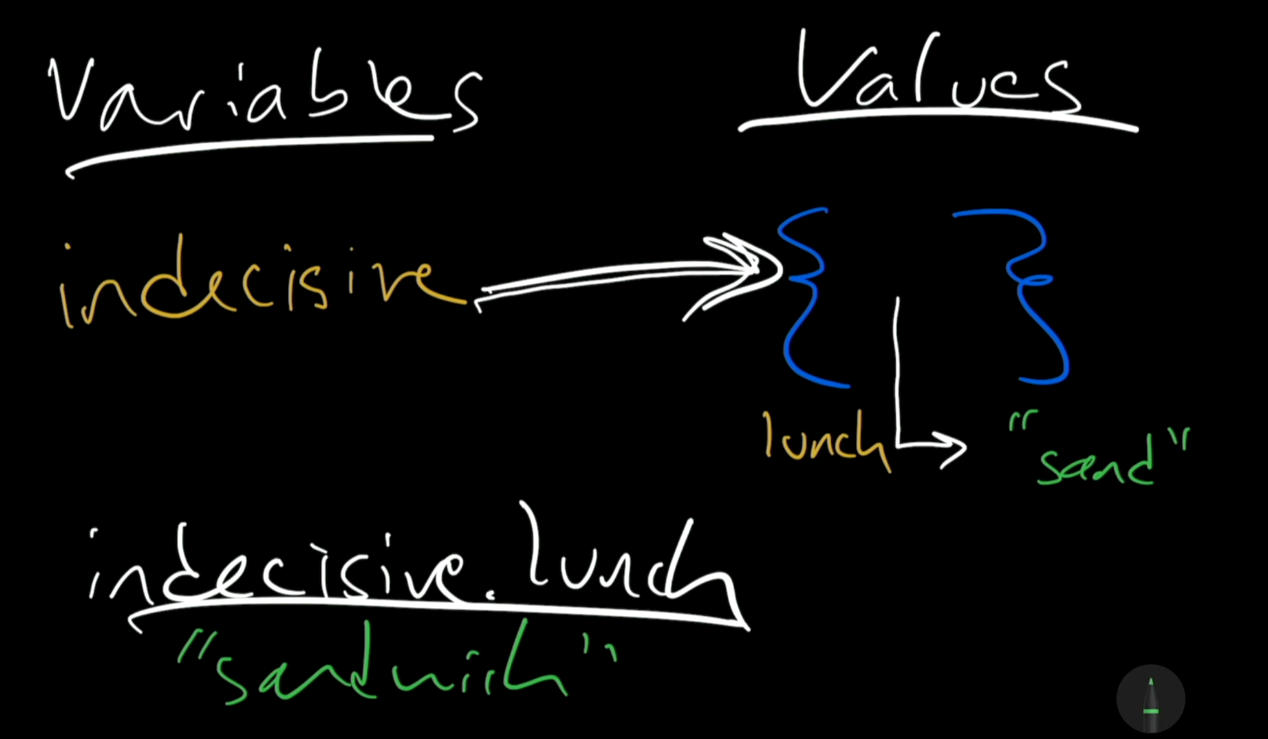 Variables
Values
indecisive
{ }
lunch
"sand"
indecisive.lunch
"sandwich"